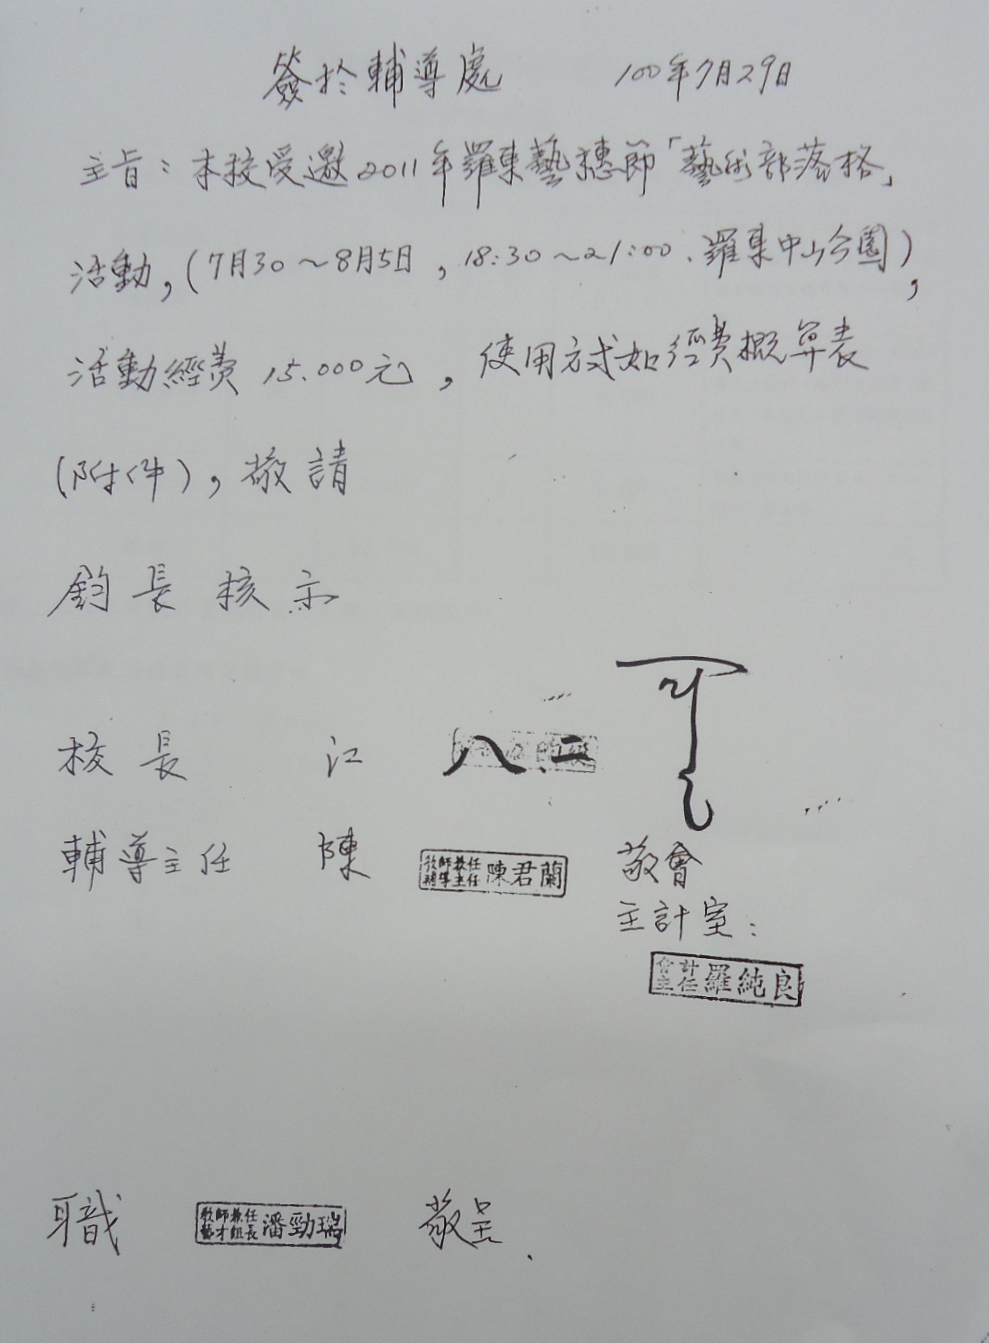 簽於輔導處 100年7月29日
主旨：本校受邀2011年羅東藝穗節「藝術部落格」
活動,(7月30～8月5日,18:30～21:00、羅東中山公園),
活動經費15.000元,使用方式如經費概算表
(附件),敬請
鈞長核示
可
校長 江 八.二
輔導主任 陳 教師兼任輔導主任 陳君蘭 敬會
主計室：
會計主任 羅純良
職 教師兼任藝才組長 潘勁瑞 敬呈.